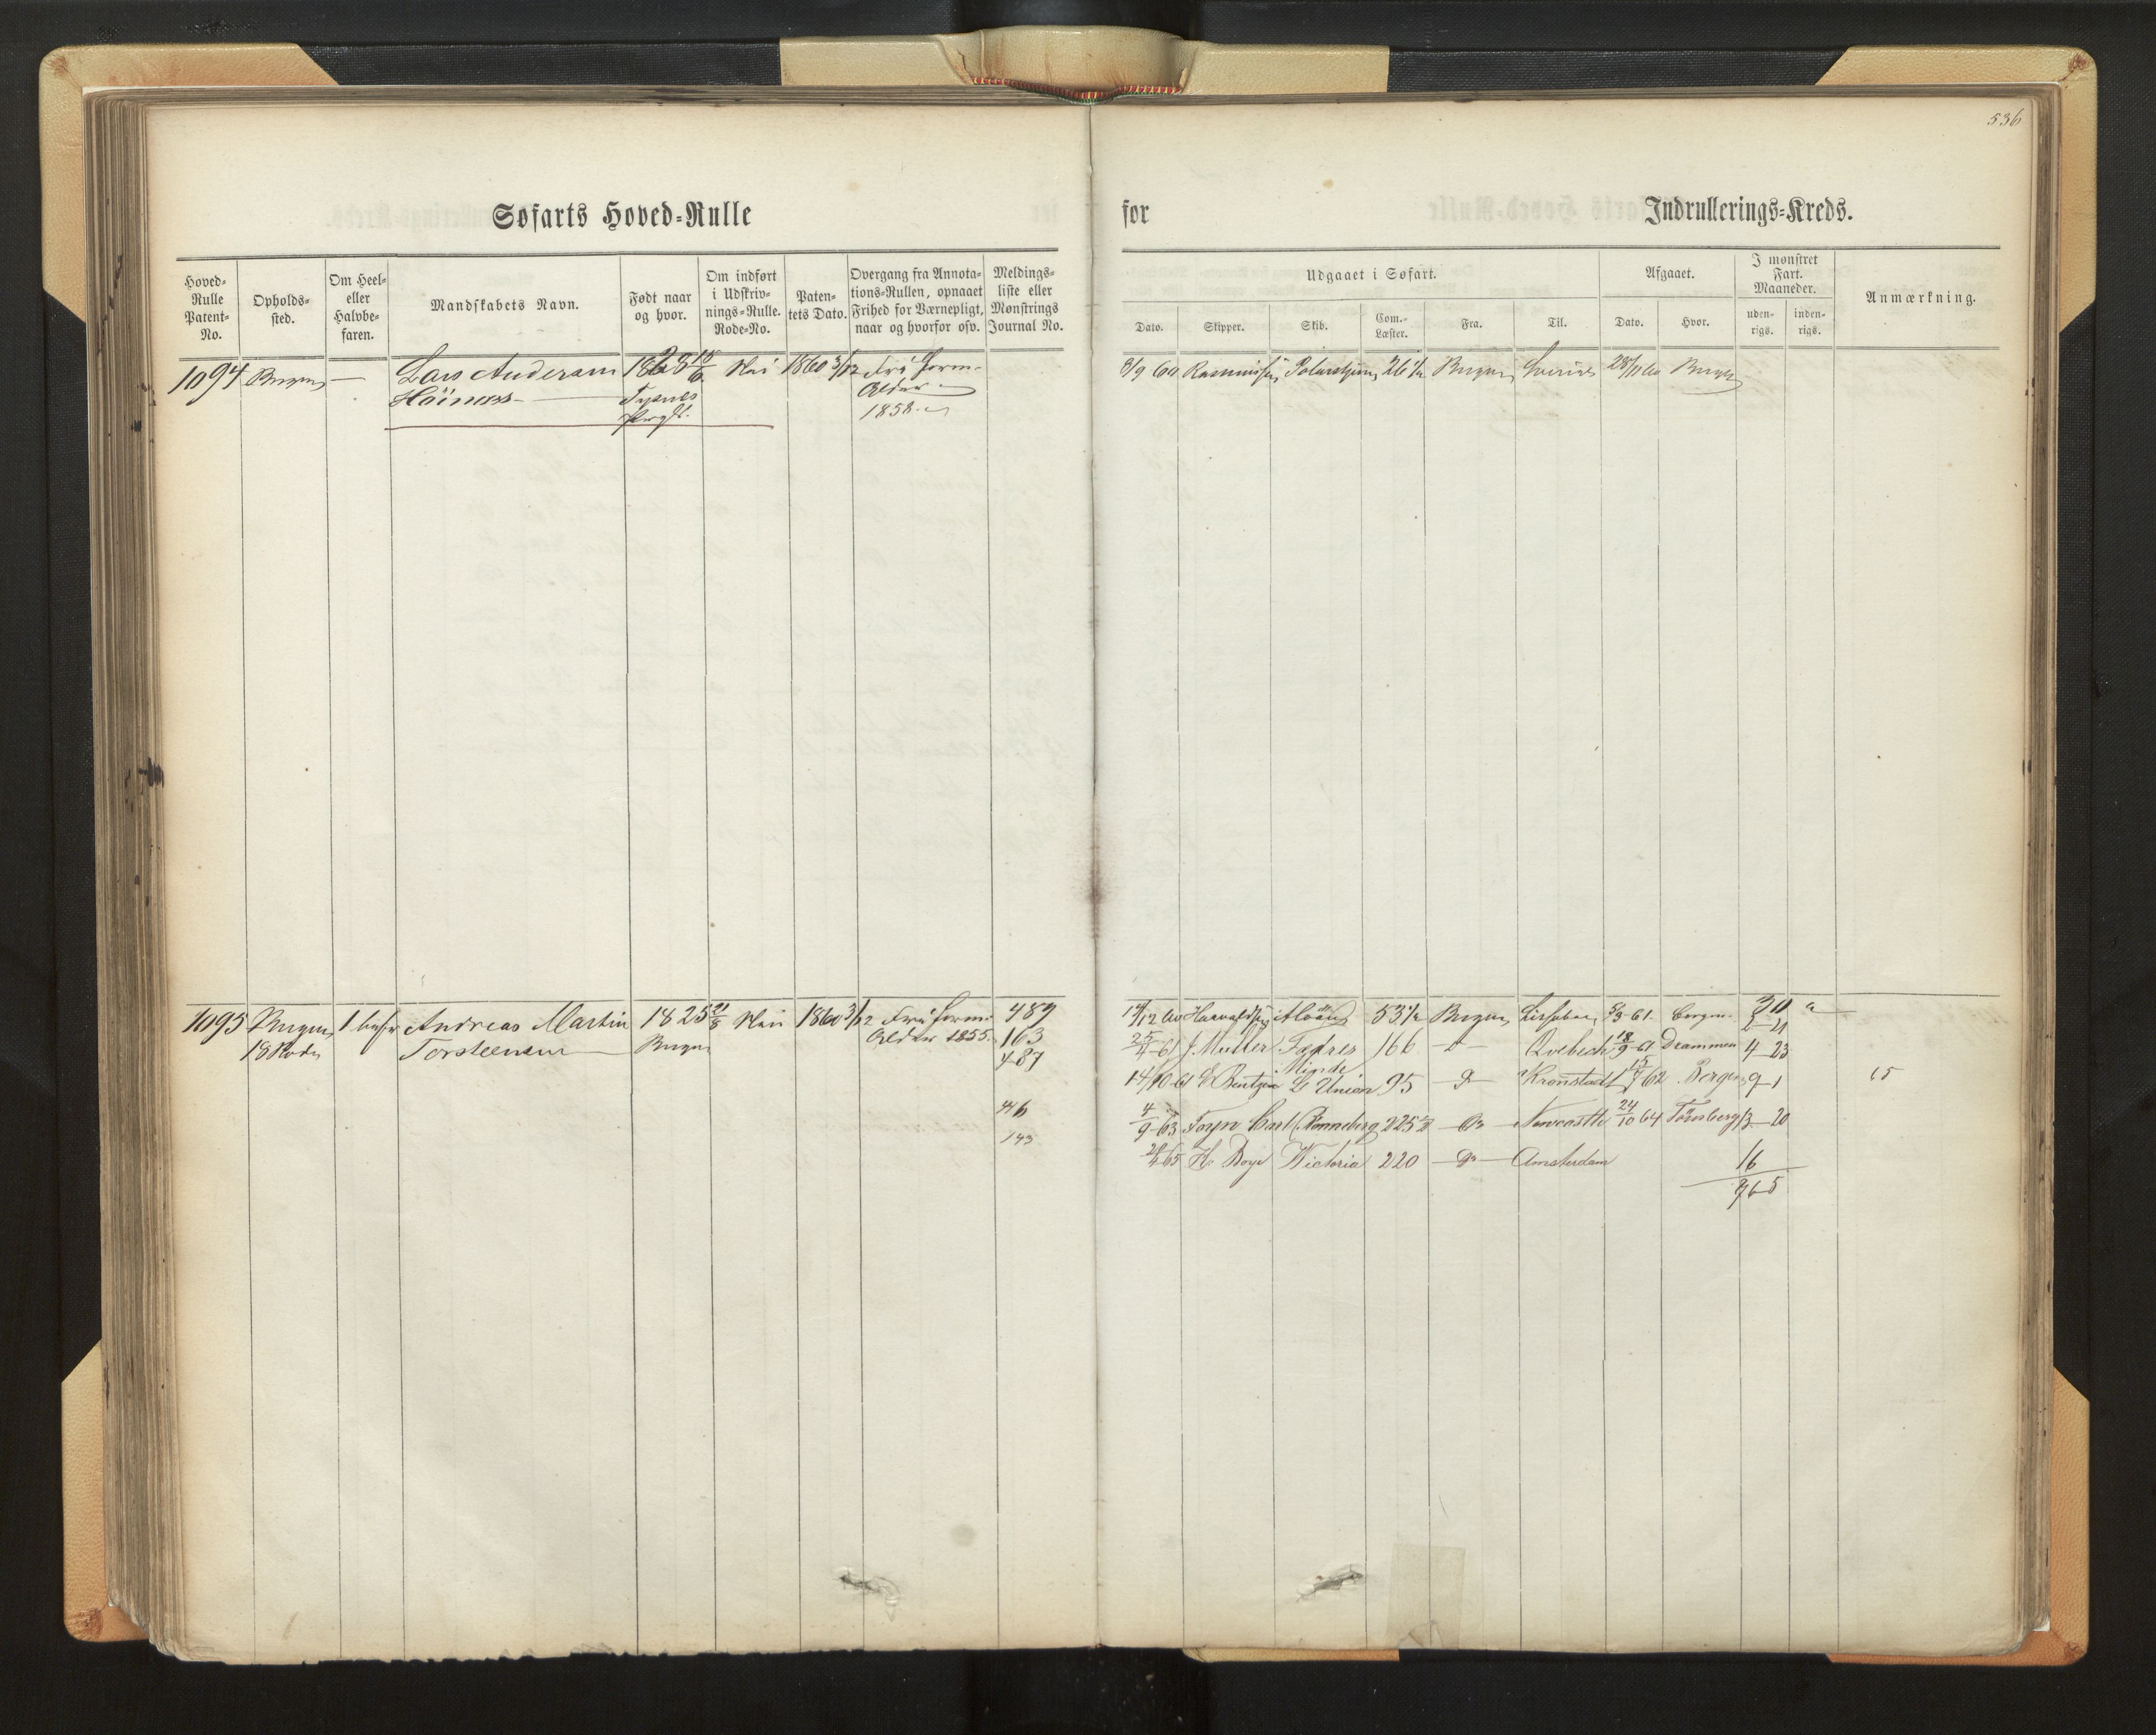 536
Søfarts Hoved-Rulle
for
Indrullerings-Kreds.
Hoved-Rulle Patent-No.
Opholds-sted.
Om Heel- eller Halvbe-faren.
Mandskabets Navn.
Født naar og hvor.
Om indført i Udskriv-nings-Rulle. Rode-No.
Paten-tets Dato.
Overgang fra Annota-tions-Rullen, opnaaet Frihed for Værnepligt, naar og hvorfor osv.
Meldings-liste eller Mønstrings Journal No.
Udgaaet i Søfart.
Dato.
Skipper.
Skib.
Com.-Læster.
Fra.
Til.
Afgaaet.
Dato.
Hvor.
I mønstret Fart. Maaneder.
uden-rigs.
inden-rigs.
Anmærkning.
1094 Bergen — Lars Andersen Nei 1860 3/12 Fri form.
Høinæs Tysnes Alder
Prgld. 1858.
9/9 60 Rasmussen Polarstjern 26 1/2 Bergen Sverige Bergen
1095 Bergen Andreas Martin 1825 21/8 Nei 1860 3/12 Fri form. 489
18 Rode Torsteensen Bergen Alder 1855. 163
487
446
143
53 1/2 Bergen 61 Bergen
25/4-61 J. Müller Fædres 166 Qvebech 18/9-61 Drammen 4-23
Minde
14/10-61 E Bentzen L Union 95 Kronstadt 15/7 62 Bergen 9-1 65
4/9-63 Foyn Carl Rønneberg 225 1/2 Do Newcastle 24/10 64 Tønsberg 13-20
65 H. Boye Wictoria 220 Do Amsterdam 16